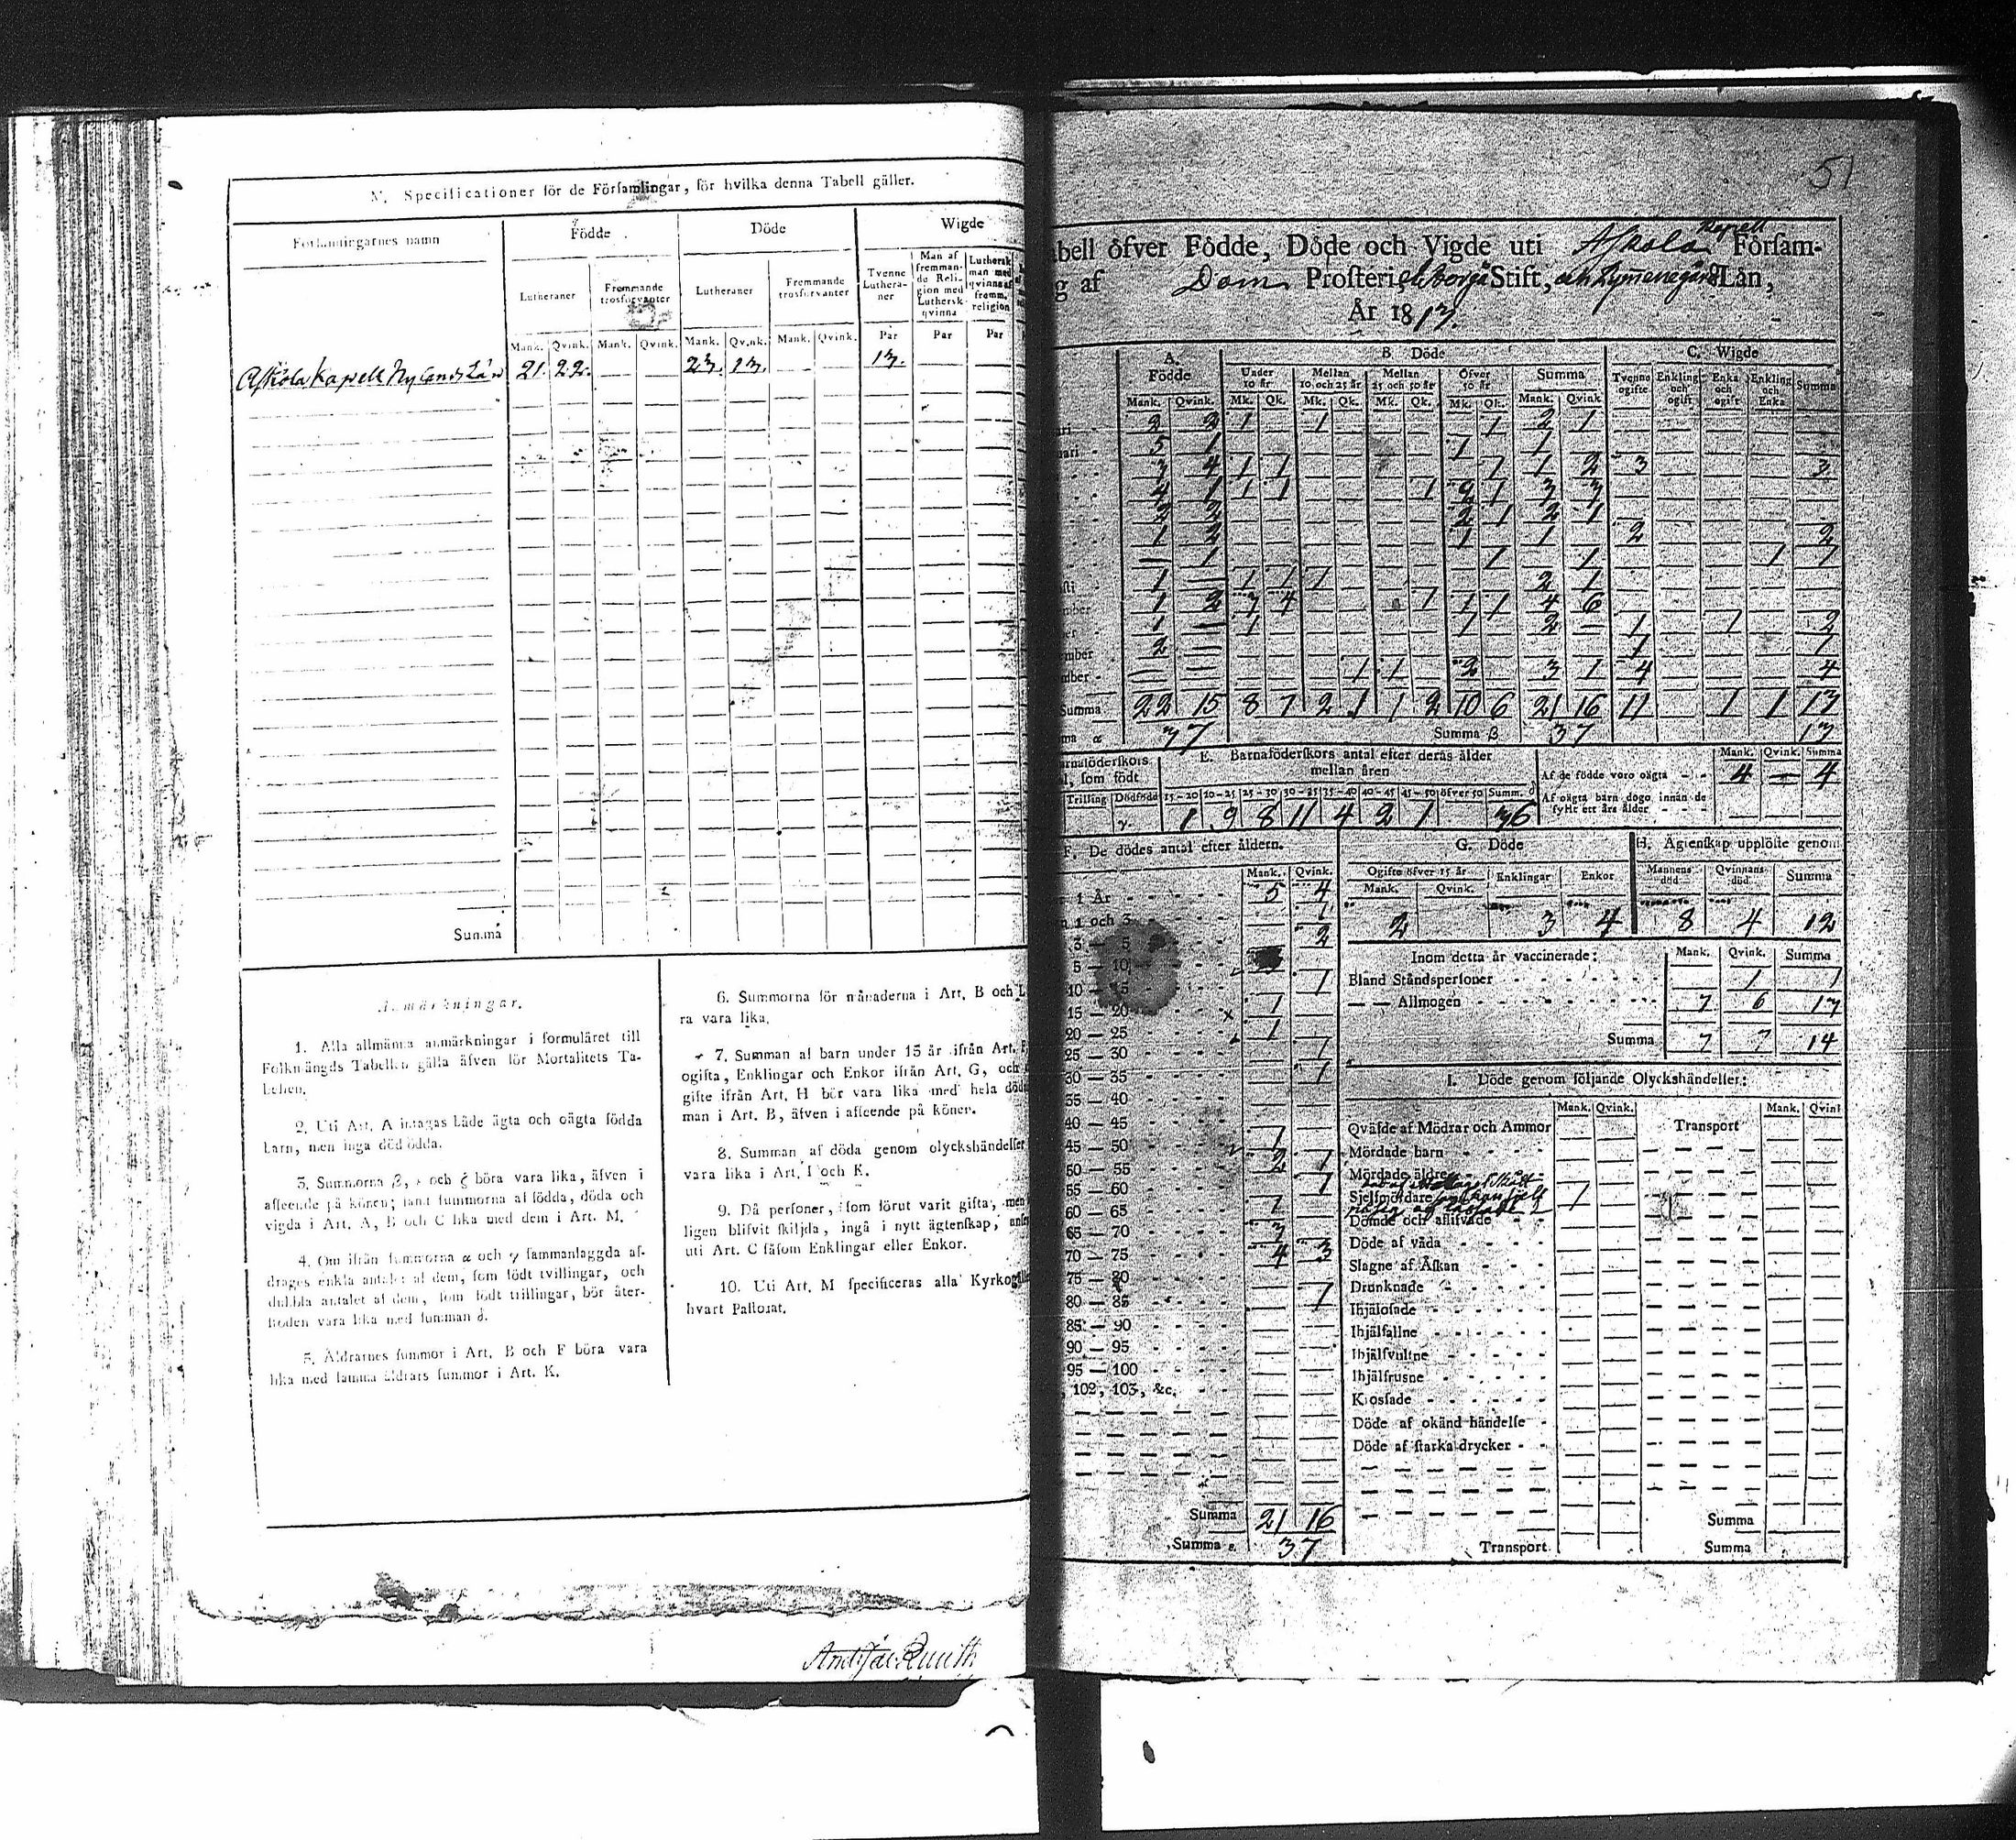 M. Specificationer för de Församlingar, för hvilka denna Tabell gäller.
Församlingarnes namn Födde Döde Wigde
Lutheraner Fremmande trosförvanter Lutheraner Fremmande trosförvanter Tvenne Lutheraner Man af fremmande Religion med Luthersk qvinna Luthersk man med qvinna af fremm. religion
Mank. Qvink. Mank. Qvink. Mank. Qvink. Mank. Qvink. Par Par Par
Askola Kapell Nylands Län 21. 22. 23. 13. 13.
Summa
Anmärkningar.
1. Alla allmänna anmärkningar i formuläret till
Folkmängds Tabellen gälla äfven för Mortalitets Ta-
bellen.
2. Uti Art. A intagas både ägta och oägta födda
barn, men inga dödfödda.
3. Summorna β, ε och ζ böra vara lika, äfven i
afseende på könen; samt summorna af födda, döda och
vigda i Art. A, B och C lika med dem i Art. M.
4. Om ifrån summorna α och γ sammanlaggda af-
drages enkla antalet af dem, som födt tvillingar, och
dubbla antalet af dem, som födt trillingar, bör åter-
stoden vara lika med summan δ.
5. Åldrarnes summor i Art. B och F böra vara
lika med samma åldrars summor i Art. K.
6. Summorna för månaderna i Art. B och L
ra vara lika.
7. Summan af barn under 15 år ifrån Art. F
ogifta, Enklingar och Enkor ifrån Art. G, och
gifte ifrån Art. H bör vara lika med hela död
man i Art. B, äfven i afseende på könen.
8. Summan af döda genom olyckshändelser
vara lika i Art. I och K.
9. Då personer, som förut varit gifta, men
ligen blifvit skiljda, ingå i nytt ägtenskap,
uti Art. C såsom Enklingar eller Enkor.
10. Uti Art. M specificeras alla Kyrko
hvart Pastorat.
51
bell öfver Födde, Döde och Vigde uti Askola Kapell Försama-
g af Dom Prosteri, Borgå Stift, och Kymenegårds Län,
År 1813.
A. Födde B Döde C. Wigde
Under 10 år Mellan 10 och 25 år Mellan 25 och 50 år Öfver 50 år Summa Tvenne ogifte Enkling och ogift Enka och ogift Enkling och Enka Summa
Mank. Qvink. Mk. Qk. Mk. Qk. Mk. Qk. Mk. Qk. Mank. Qvink
ri 2 2 1 1 1 2 1
uari 5 1 1 1
3 4 1 1 1 1 2 3 3
4 1 1 1 1 2 1 3 3
2 2 2 1 2 1
1 2 1 1 2 2
1 1 1 1 1
sti 1 1 1 1 2 1
mber 1 2 3 4 1 1 1 4 6
er 1 1 1 2 1 1 2
ember 2 1 1
mber 1 1 2 3 1 4 4
Summa 22 15 8 7 2 1 1 2 10 6 21 16 11 1 1 13
ma α 37 Summa β 37 13
arnaföderskors
l, som födt
Trilling Dödfödd
E. Barnaföderskors antal efter deras ålder
mellan åren
15–20 20–25 25–30 30–35 35–40 40–45 45–50 öfver 50 Summ. δ
1 9 8 11 4 2 1 36
Mank. Qvink. Summa
Af de födde voro oägta 4 — 4
Af oägta barn dogo innan de
fyllt ett års ålder
F. De dödes antal efter åldern.
Mank. Qvink.
1 År 5 4
1 och 3 1
3 — 5 2
5 — 10
10 — 15 1
15 — 20 1
20 — 25 1
25 — 30 1
30 — 35 1
35 — 40
40 — 45
45 — 50 1
50 — 55 2 1
55 — 60 1
60 — 65 1
65 — 70 3
70 — 75 4 3
75 — 80
80 — 85 1
85 — 90
90 — 95
95 — 100
102, 103, &c.
Summa 21 16
Summa ε. 37
G. Döde
Ogifte öfver 15 år Enklingar Enkor
Mank. Qvink.
2 3 4
H. Ägtenskap upplöste genom
Mannens död Qvinnans död Summa
8 4 12
Inom detta år vaccinerade: Mank. Qvink. Summa
Bland Ståndspersoner 1 1
— — Allmogen 7 6 13
Summa 7 7 14
I. Döde genom följande Olyckshändelser:
Mank. Qvink. Mank. Qvink
Qväfde af Mödrar och Ammor Transport
Mördade barn
Mördade äldre
Sjelfmördare 1
Dömde och aflifvade
Döde af våda
Slagne af Åskan
Drunknade
Ihjälosade
Ihjälfallne
Ihjälsvultne
Ihjälfrusne
Krossade
Döde af okänd händelse
Döde af starka drycker
Summa
Transport Summa